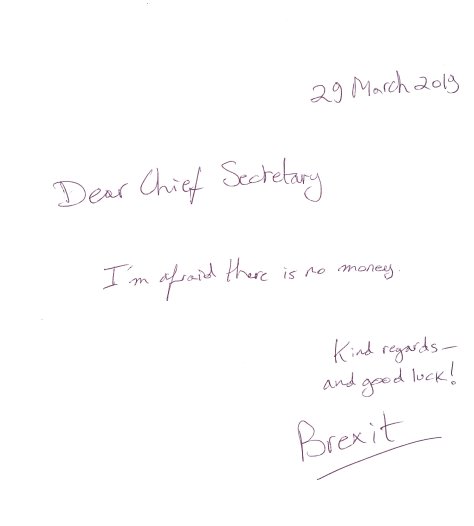 29 March 2019
Dear Chief Secretary
I'm afraid there is no money.
Kind regards—
and good luck!
Brexit